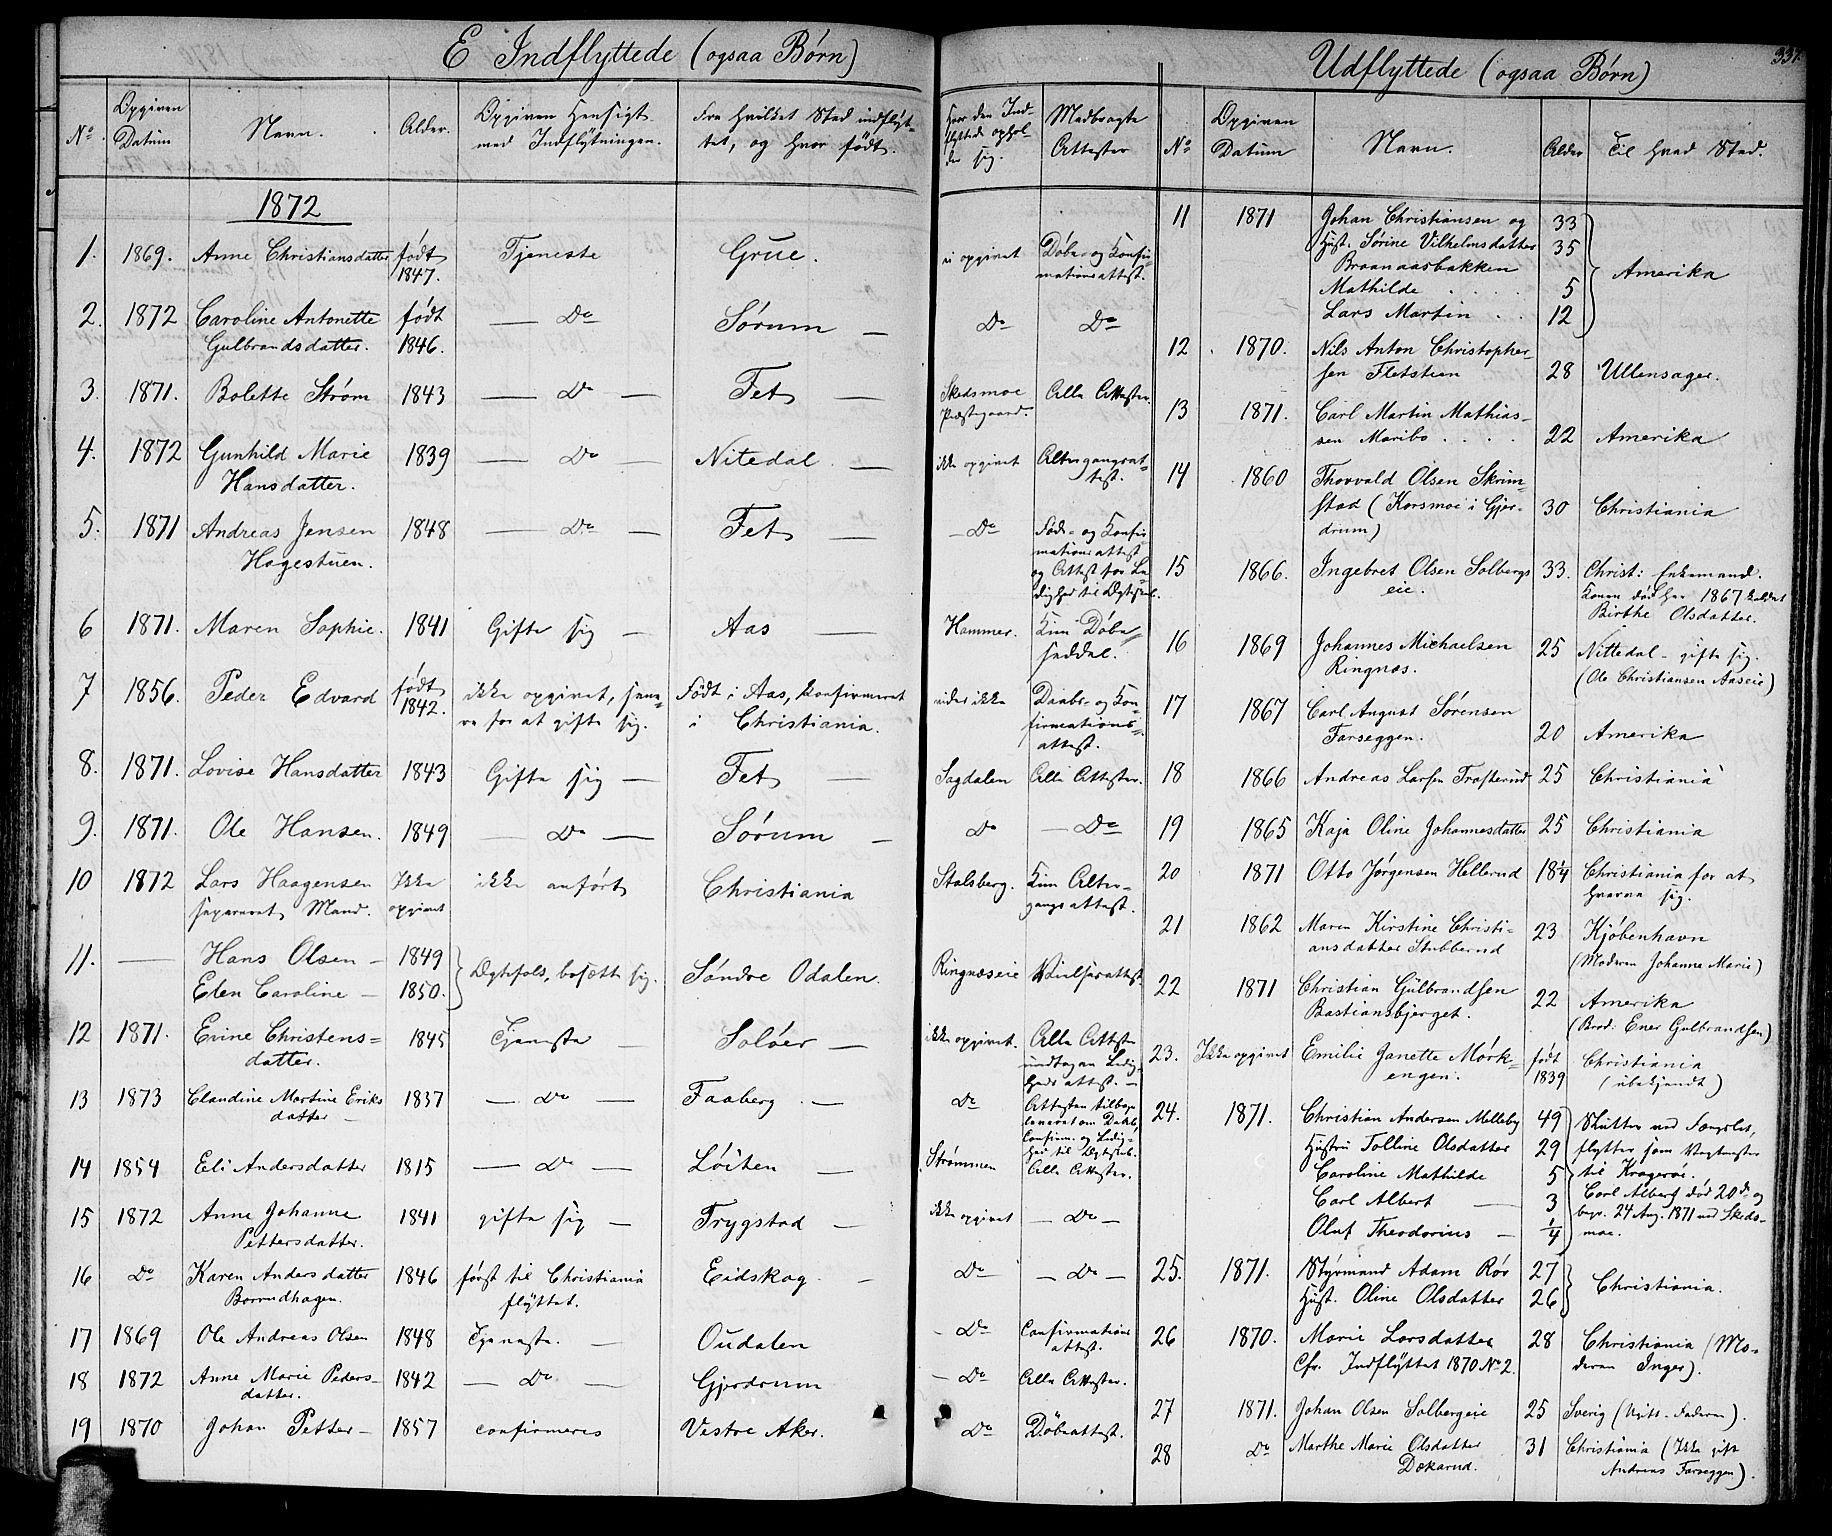 E Indflyttede (ogsaa Børn)
No. Opgiven Datum Navn. Alder. Opgiven Hensigt med Indflytningen. Fra hvilket Sted indflyttet, og hvor født. Hvor den Indflyttede opholder sig. Medbragte Attester
1872
1. 1869. Anne Christiansdatter født 1847. Tjeneste Grue. ei opgivet Døbe- og Konfirmationsattest.
2. 1872 Caroline Antonette Gulbrandsdatter. født 1846. — Do Sørum — Do Do
3. 1871. Bolette Strøm 1843 — Do — Fet — Skedsmoe Præstegaard. Alle Attester.
4. 1872 Gunhild Marie Hansdatter. 1839 — Do — Nitedal. — ikke opgivet Altergangsattest.
5. 1871 Andreas Jensen Hagestuen. 1848 — Do — Fet — Do Føde- og Konfirmationsattest og Attest for Ledighed til Ægteskab.
6 1871. Maren Sophie. 1841 Gifte sig — Aas — Hammer. Kun Døbeseddel.
7 1856. Peder Edvard født 1842. ikke opgivet, senere for at gifte sig. Født i Aas, konfirmeret i Christiania. vides ikke Daabs- og Konfirmationsattest.
8. 1871. Lovise Hansdatter 1843 Gifte sig — Fet — Sagdalen Alle Attester.
9. 1871. Ole Hansen. 1849 — Do — Sørum — Do — Do
10 1872 Lars Haagensen separeret Mand. Ikke opgivet ikke anført Christiania Stalsberg. Kun Altergangsattest.
11. — Hans Olsen — 1849
Elen Caroline — 1850. Ægtefolk, bosætte sig. Søndre Odalen. Ringnæseie Vielsesattest.
12 1871. Evine Christensdatter. 1845 Tjeneste — Soløer — ikke opgivet. Alle Attester undtagen Ledighedsattest. —
13 1873 Claudine Martine Eriksdatter — 1837 — Do — Faaberg. — Do Attesten tilbageleveret om Daab, Confirm. og Ledighed til Ægteskab.
14 1854 Eli Andersdatter 1815 — Do — Løiten — Strømmen Alle Attester.
15 1872 Anne Johanne Pettersdatter. 1841 gifte sig — Trygstad — ikke opgivet — Do —
16 Do Karen Andersdatter Borrudhagen. 1846 først til Christiania flyttet. Eidskog — Do — Do —
17 1869 Ole Andreas Olsen 1848 Tjeneste. — Oudalen — Do Confirmationsattest.
18 1872 Anne Marie Pedersdatter. 1842 — Do — Gjerdrum — Do Alle Attester.
19 1870 Johan Petter — 1857 confirmeres Vestre Aker. Do Døbeattest.
Udflyttede (ogsaa Børn)
337.
No Opgiven Datum Navn. Alder Til hvad Sted.
11 1871 Johan Christiansen og 33
Hust. Sørine Vilhelmsdatter 35
Braanaasbakken Amerika
Mathilde . . . . 5
Lars Martin . . 12
12 1870. Nils Anton Christophersen Fletstien 28 Ullensager.
13 1871. Carl Martin Mathiassen Maribo . . . . 22 Amerika
14 1860 Thorvald Olsen Skrimstad (Korsmoe i Gjerdrum) 30 Christiania
15 1866. Ingebret Olsen Solbergseie. 33. Christ: Enkemand.
Konen død her 1867 kaldet
Birthe Olsdatter.
16 1869 Johannes Michaelsen Ringnæs. 25 Nittedal — gifte sig.
(Ole Christiansen Aaseie)
17 1867 Carl August Sørensen Farseggen. 20 Amerika
18 1866 Andreas Larsen Trosterud 25 Christiania
19 1865 Kaja Oline Johannesdatter 25 Christiania
20 1871 Otto Jørgensen Hellerud 18¼ Christiania for at hverve sig.
21 1862 Maren Kirstine Christiansdatter Stubberud 23 Kjøbenhavn
(Moderen Johanne Marie)
22 1871 Christian Gulbrandsen Bastiansbjerget. 22 Amerika
(Brod: Ener Gulbrandsen)
23. Ikke opgivet Emilie Janette Mørkengen. født 1839 Christiania
(ubekjendt)
24. 1871. Christian Andersen Melleby 49 Slutter ved Fængslet,
Hustru Tolline Olsdatter 29 flytter som Vagtmester
Caroline Mathilde 5 til Kragerøe.
Carl Albert — 3 Carl Albert død 20de og
Oluf Theodorius — ¼ begr. 24 Aug. 1871 ved Skedsmoe.
25. 1871. Styrmand Adam Rør 27
Hust. Oline Olsdatter 26 Christiania.
26 1870. Marie Larsdatter 28 Christiania (Moderen Inger).
Cfr. Indflyttet 1870 No 2.
27 1871. Johan Olsen Solbergeie 25 Sverig (Faderen).
28 Do Marthe Marie Olsdatter Dokarud. 31 Christiania (Ikke gift
Andreas Farseggen).